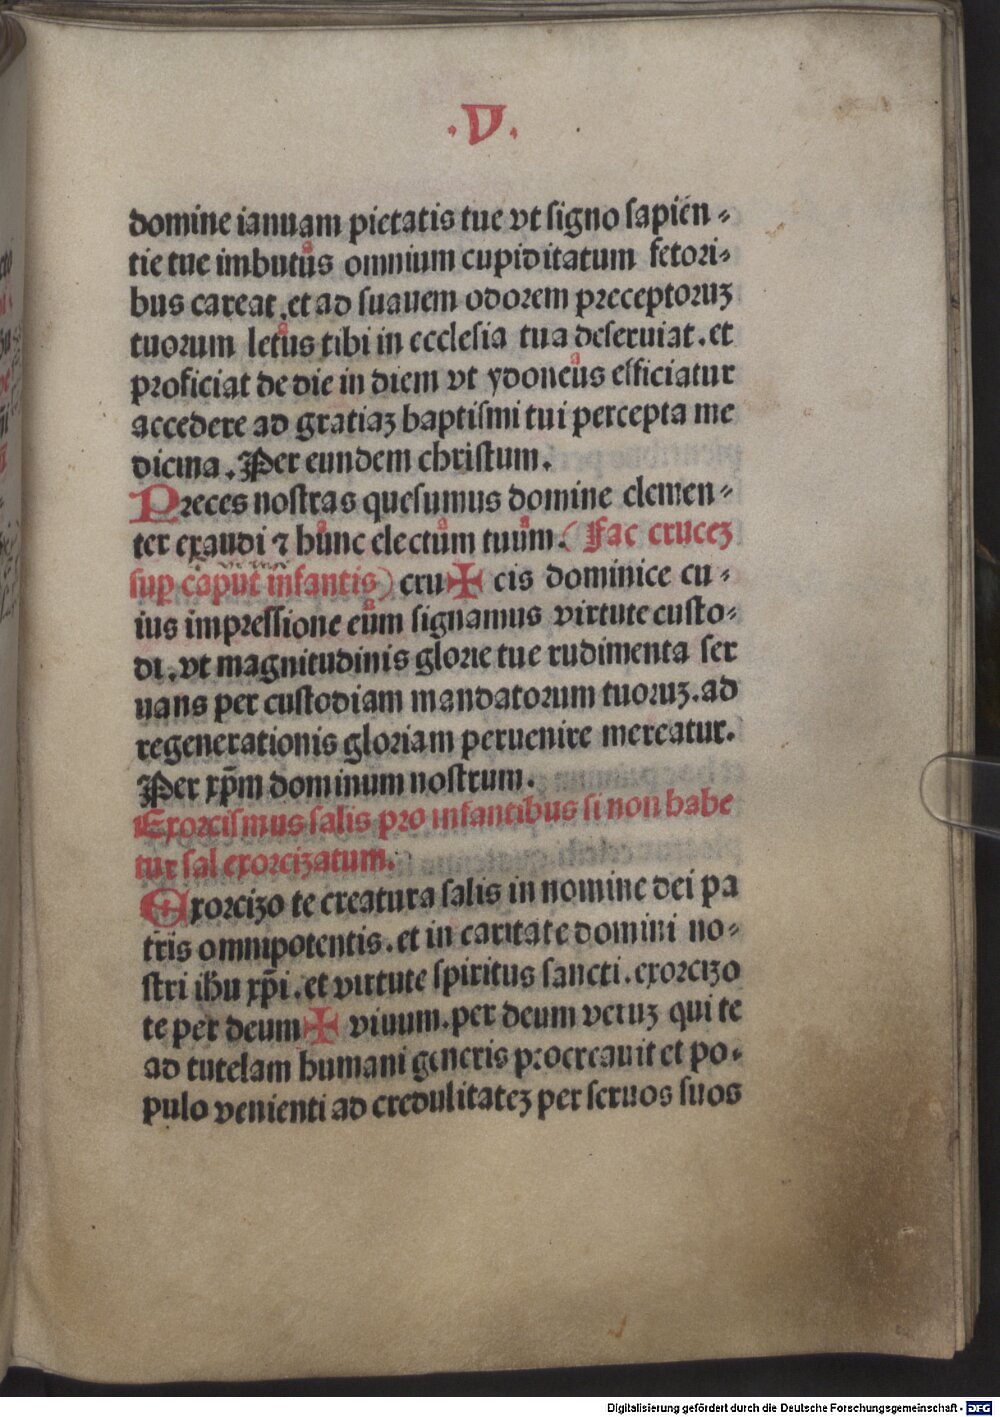 .V.
domine ianuam pietatis tue vt signo sapien-
tie tue imbutus omnium cupiditatum fetori-
bus careat .et ad suauem odorem preceptoruꝫ
tuorum letus tibi in ecclesia tua deseruiat . et
proficiat de die in diem vt ydoneus efficiatur
accedere ad gratiaꝫ baptismi tui percepta me
dicina . Per eundem christum.
Preces nostras quesumus domine clemen-
ter exaudi ⁊ hunc electum tuum. ( Fac cruceꝫ
suꝑ caput infantis) cru✠ cis dominice cu-
ius impressione eum signamus virtute custo-
di . vt magnitudinis glorie tue rudimenta ser
uans per custodiam mandatorum tuoruꝫ . ad
regenerationis gloriam peruenire mereatur.
Per xp̃m dominum nostrum.
Exorcismus salis pro infantibus si non habe
tur sal exorcizatum.
Exorcizo te creatura salis in nomine dei pa
tris omnipotentis . et in caritate domini no-
stri ih̃u xp̃i . et virtute spiritus sancti . exorcizo
te per deum ✠ viuum . per deum veruꝫ qui te
ad tutelam humani generis procreauit et po-
pulo venienti ad credulitateꝫ per seruos suos
Digitalisierung gefördert durch die Deutsche Forschungsgemeinschaft - DFG